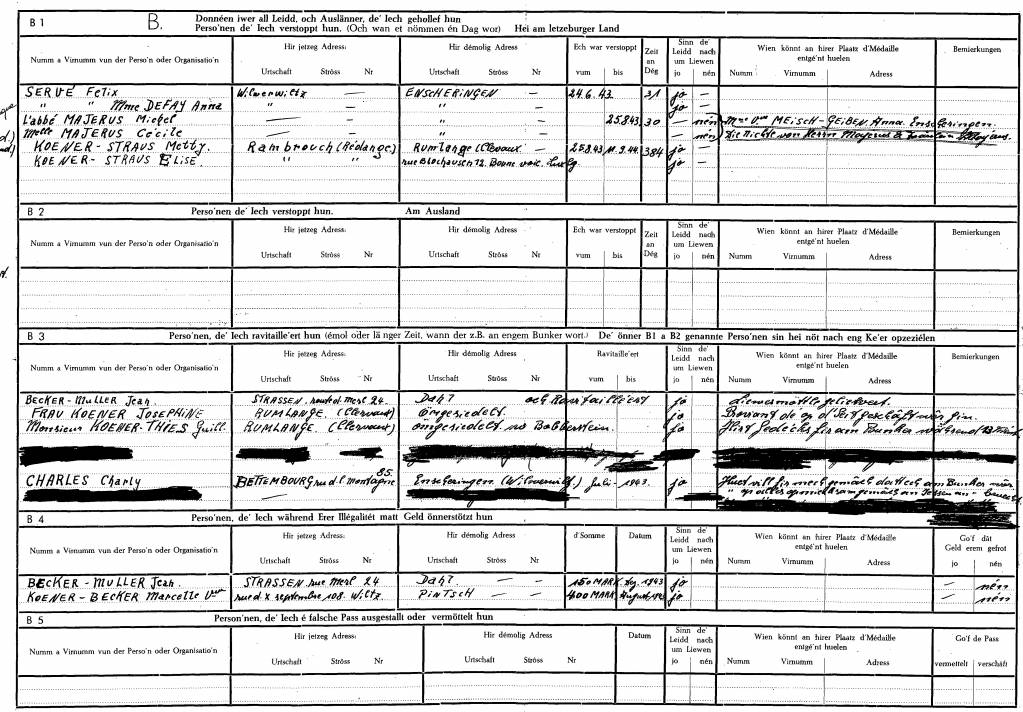 B 1 B. Donnéen iwer all Leidd, och Auslänner, de' Iech gehollef hun
Perso'nen de' Iech verstoppt hun. (Och wan et nömmen én Dag wor) Hei am letzeburger Land
Numm a Virnumm vun der Perso'n oder Organisatio'n Hir jetzeg Adress: Hir démolig Adress Ech war verstoppt Zeit an Dég Sinn de' Leidd nach um Liewen Wien könnt an hirer Plaatz d'Médaille entgé'nt huelen Bemierkungen
Urtschaft Ströss Nr Urtschaft Ströss Nr vum bis jo nén Numm Virnumm Adress
SERVÉ Felix Wilwerwiltz — ENSCHERINGEN — 24.6.43 31 jo —
" " Mme DEFAY Anna " — " — jo —
L'abbé MAJERUS Michel " — " 25.8.43 30 — nén Mme Vve MEISCH-GEIBEN Anna Enscheringen.
Melle MAJERUS Cécile " — " — nén
KOENER-STRAUS Metty. Rambrouch (Rédange) Rumlange (Clevaux — 25.8.43 11.9.44. 384 jo —
KOENER-STRAUS ELISE. " " rue Blochausen 12. Bonne voie. Luxbg. jo —
B 2 Perso'nen de' Iech verstoppt hun. Am Ausland
Numm a Virnumm vun der Perso'n oder Organisatio'n Hir jetzeg Adress: Hir démolig Adress Ech war verstoppt Zeit an Dég Sinn de' Leidd nach um Liewen Wien könnt an hirer Plaatz d'Médaille entgé'nt huelen Bemierkungen
Urtschaft Ströss Nr Urtschaft Ströss Nr vum bis jo nén Numm Virnumm Adress
B 3 Perso'nen, de' Iech ravitaille'ert hun (émol oder länger Zeit, wann der z.B. an engem Bunker wort.) De' önner B1 a B2 genannte Perso'nen sin hei nöt nach eng Ke'er opzeziélen
Numm a Virnumm vun der Perso'n oder Organisatio'n Hir jetzeg Adress: Hir démolig Adress Ravitaille'ert Sinn de' Leidd nach um Liewen Wien könnt an hirer Plaatz d'Médaille entgé'nt huelen Bemierkungen
Urtschaft Ströss Nr Urtschaft Ströss Nr vum bis jo nén Numm Virnumm Adress
BECKER-MULLER Jean. STRASSEN, route d. Merl 24. Dahl jo Liewensmöttel geliwwert.
FRAU KOENER JOSEPHINE RUMLANGE. (Clervaux) ömgesiedelt. jo
Monsieur KOENER-THIES Guill. RUMLANGE. (Clervaux) ömgesiedelt no Bobberstein. jo
CHARLES Charly BETTEMBOURG rue d. l. montagne 85. Enscheringen (Wilwerwiltz) Juli - 1943. jo
B 4 Perso'nen, de' Iech während Erer Illégalitét matt Geld önnerstötzt hun
Numm a Virnumm vun der Perso'n oder Organisatio'n Hir jetzeg Adress: Hir démolig Adress d'Somme Datum Sinn de' Leidd nach um Liewen Wien könnt an hirer Plaatz d'Médaille entgé'nt huelen Go'f dât Geld erem gefrot
Urtschaft Ströss Nr Urtschaft Ströss Nr jo nén Numm Virnumm Adress jo nén
BECKER-MULLER Jean. STRASSEN rue Merl 24 Dahl — — 150 MARK Aug. 1943 jo — nén
KOENER-BECKER Marcelle Vve rue d. X septembre 108. Wiltz. PINTSCH — — 400 MARK jo — nén
B 5 Perso'nen, de' Iech é falsche Pass ausgestallt oder vermöttelt hun
Numm a Virnumm vun der Perso'n oder Organisatio'n Hir jetzeg Adress: Hir démolig Adress Datum Sinn de' Leidd nach um Liewen Wien könnt an hirer Plaatz d'Médaille entgé'nt huelen Go'f de Pass
Urtschaft Ströss Nr Urtschaft Ströss Nr jo nén Numm Virnumm Adress vermettelt verschâft